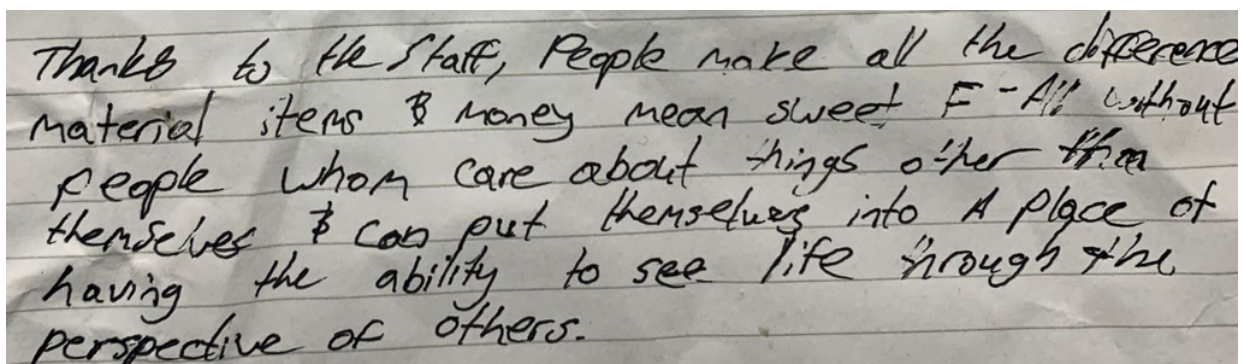 Thanks to the Staff, People make all the difference
material items & money mean sweet F-All without
people whom care about things other then
themselves & can put themselves into A place of
having the ability to see life through the
perspective of others.